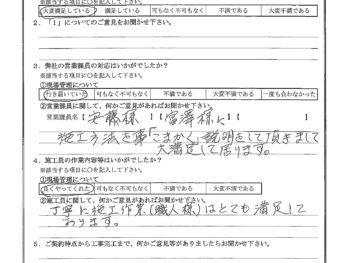 ※該当する項目に○を記入して下さい。
大変満足している 満足している 可もなく不可もなく 不満である 大変不満である
2.「1」についてのご意見をお聞かせ下さい。
3. 弊社の営業課員の対応はいかがでしたか?
※該当する項目に○を記入して下さい。
①現場管理について
行き届いていた 可もなく不可もなく 不満である 大変不満である 一度も会わなかった
②営業課員に関して、何かご意見があればお聞かせ下さい。
営業課員名【安藤様】【富澤様に】【 】
施工方法を事こまかく説明をして頂きまして
大満足して居ります。
4. 施工員の作業内容等はいかがでしたか?
※該当する項目に○を記入して下さい。
①現場管理について
良くやってくれた 可もなく不可もなく 不満である 大変不満である
②施工員に関して、何かご意見があればお聞かせ下さい。
丁寧に施工作業(職人様)はとても満足して
おります。
5. ご契約時点から工事完工まで、何かご意見等がありましたらお聞かせ下さい。